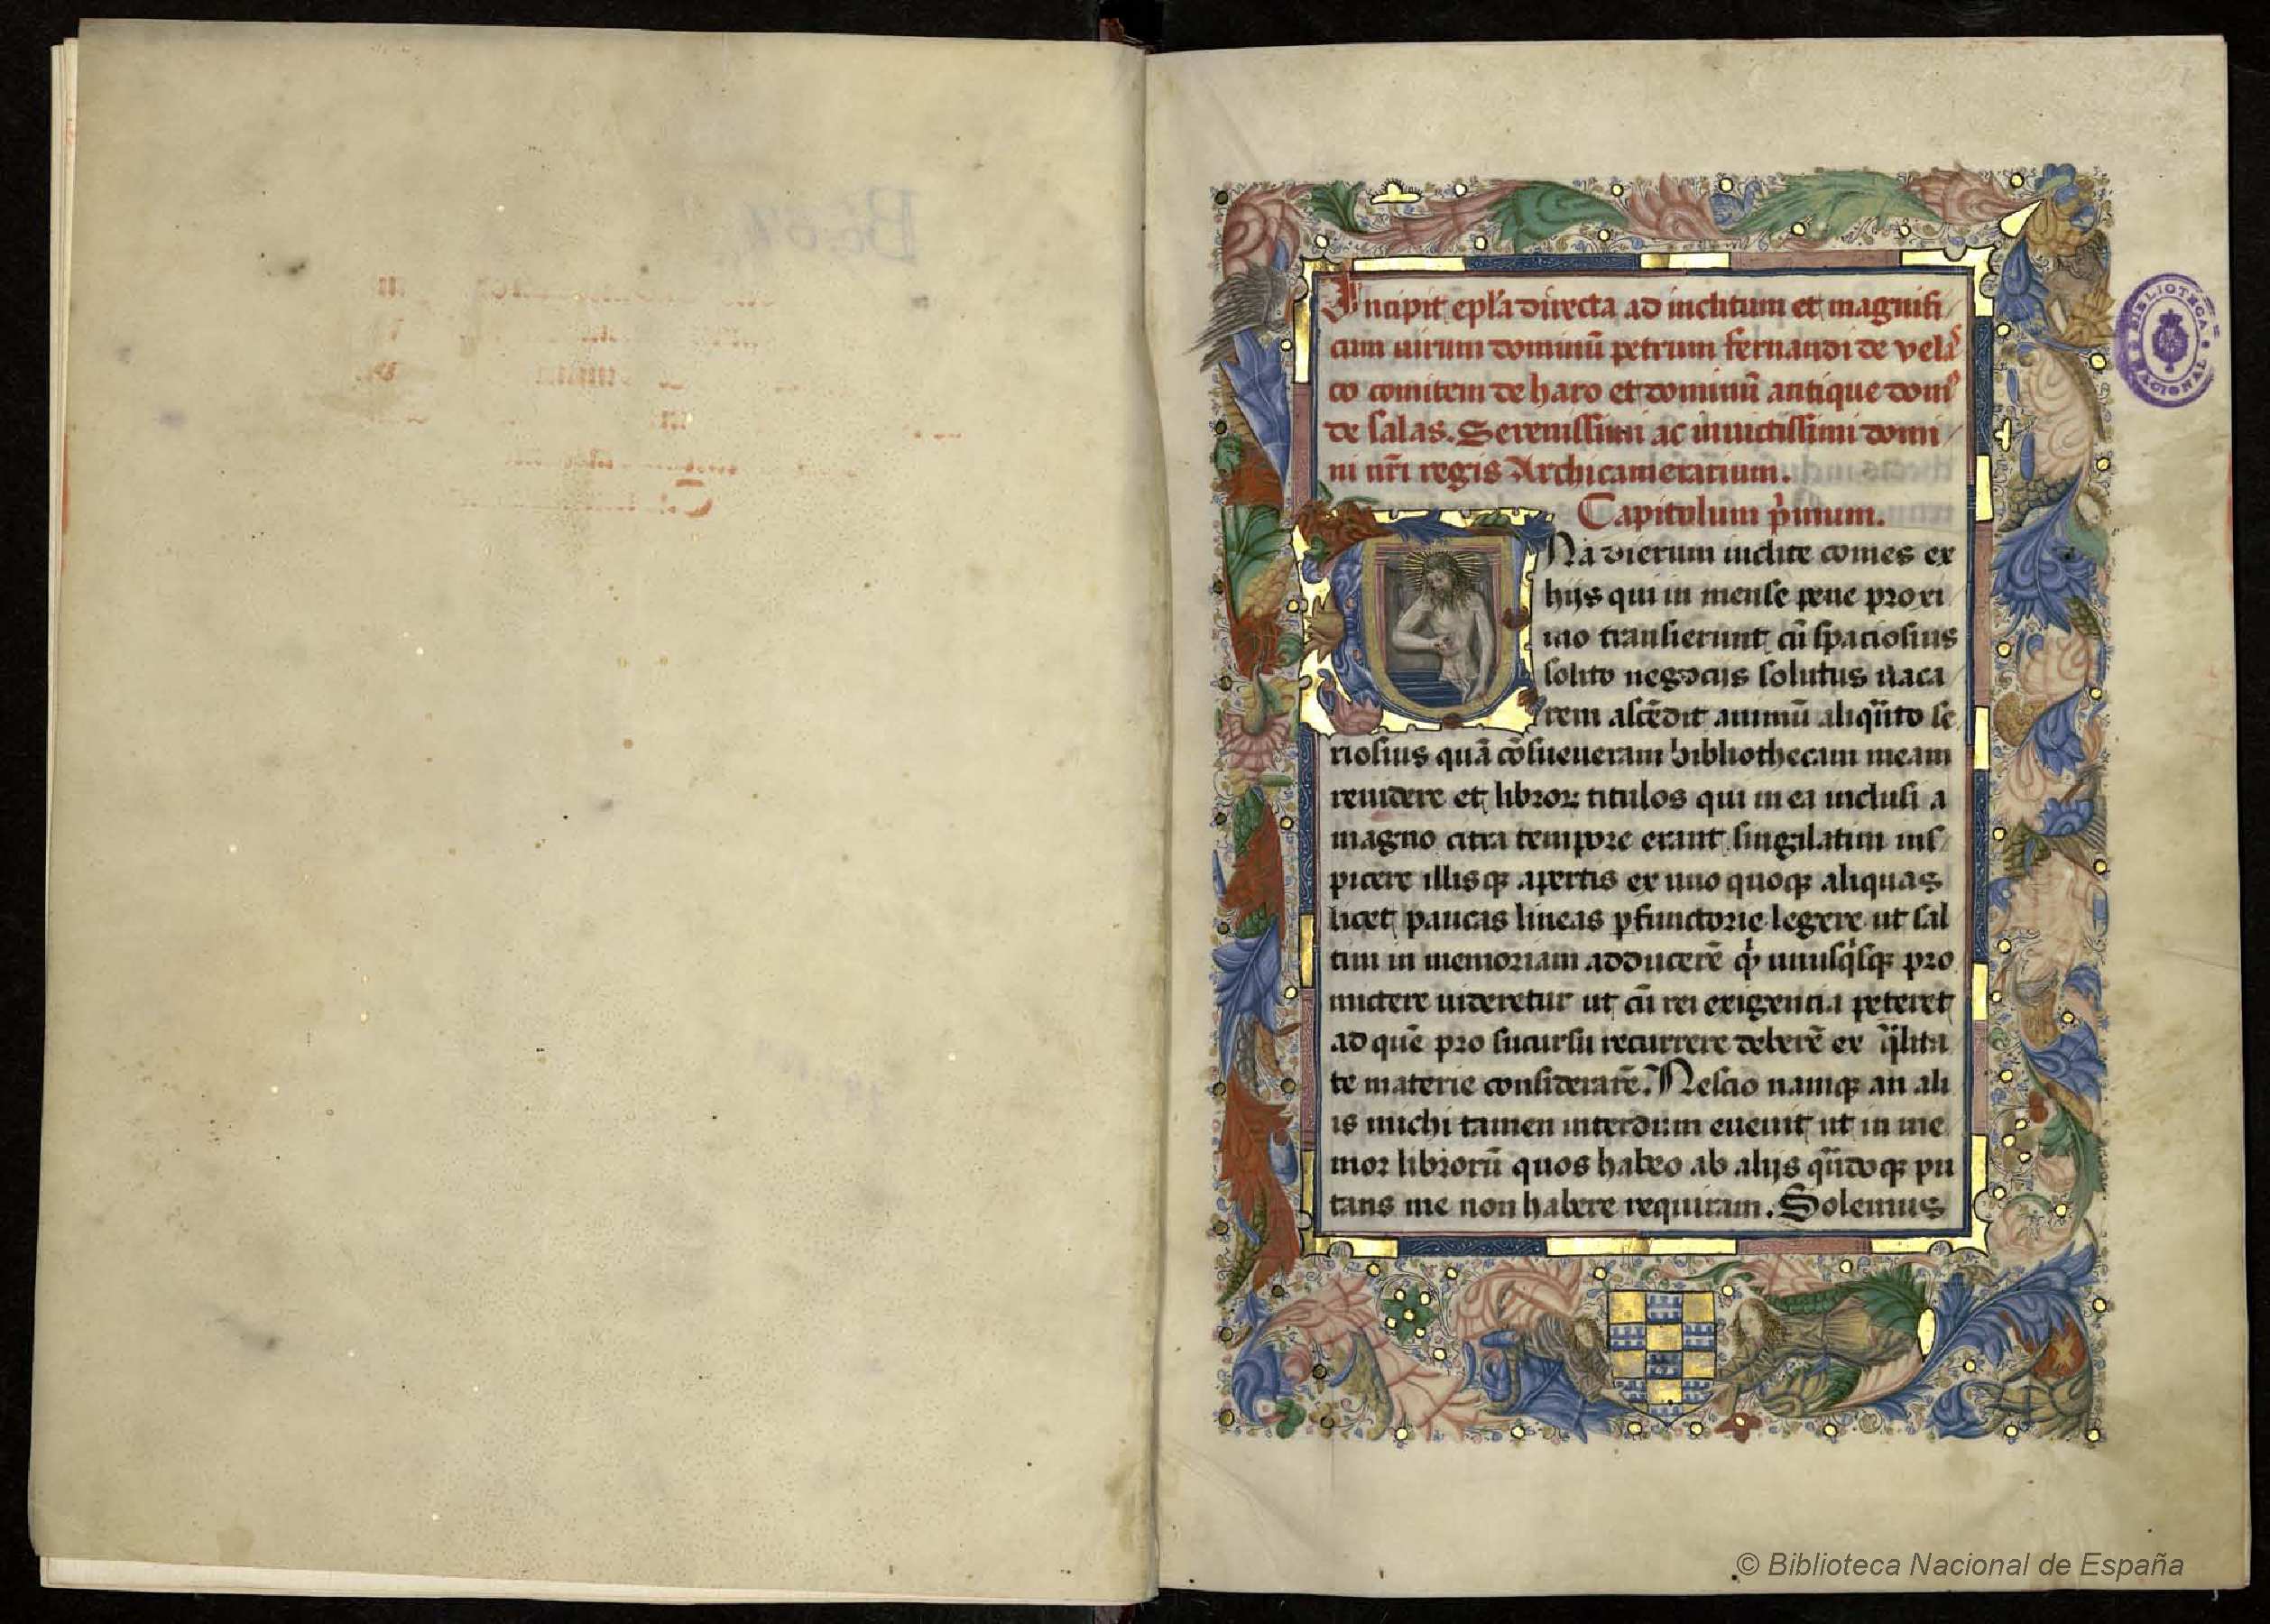 Incipit epl'a directa ad inclitum et magnifi
cum uirum dominū petrum fernandi de vela
co comitem de haro et dominū antique dom9
de salas. Serenissimi ac inuictissimi domi
ni nr̄i regis Archicamerarium.
Capitolum pͥmum.
Na dierum inclite comes ex
hijs qui in mense pene proxi
mo transierunt cū spaciosius
solito negocijs solutus uaca
rem ascēdit animū aliqn̄to se
riosius quā cōsueueram bibliothecam meam
reuidere et libroꝝ titulos qui in ea inclusi a
magno citra tempore erant singilatim ins
picere illisqꝫ apertis ex uno quoqꝫ aliquas
licet paucas lineas ꝑfunctorie legere ut sal
tim in memoriam adducerē qͥd unusqͥsqꝫ pro
mictere uideretur ut cū rei exigencia peteret
ad quē pro sucursu recurrere deberē ex qͣlita
te materie considerarē. Nescio namqꝫ an ali
is michi tamen interdum euenit ut in me
mor librorū quos habeo ab alijs qn̄doqꝫ pu
tans me non habere requiram. Solemus
BIBLIOTECA NACIONAL
© Biblioteca Nacional de España